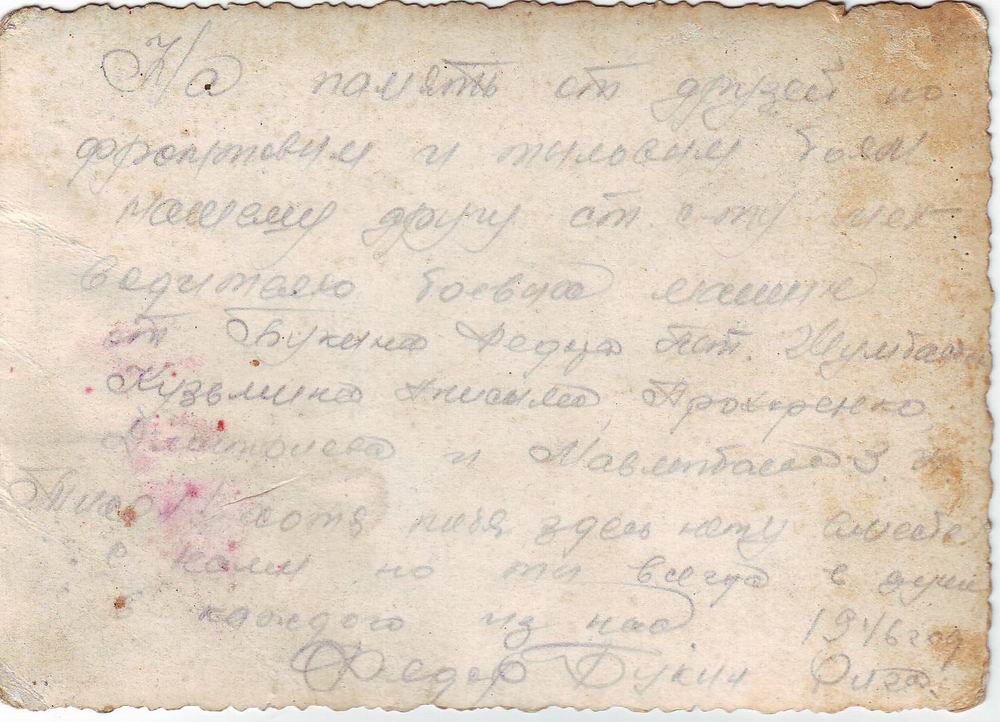 На память от друзей по
фронтовим и тиловим боям
нашему другу ст. с-ту мех
водителю боевих машин
от Букина Федра Жумбаева
Кузьмина Анисима, Прохоренко,
и Мавлетбаева З.
хотя тебя здесь нету вместе
с нами но ти всегда в душе
в каждого из нас 1946 год
Федор Букин